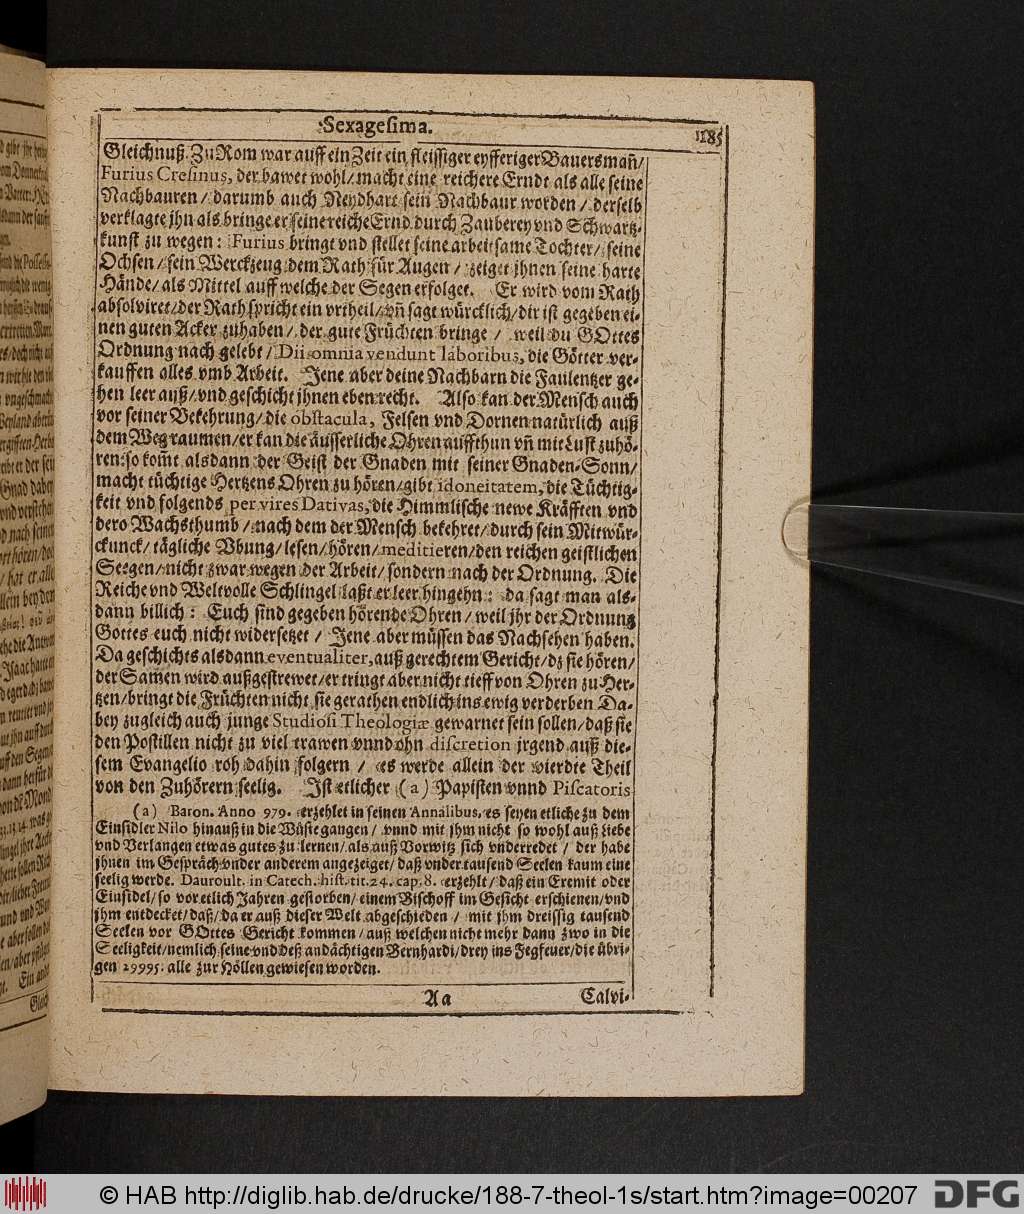 Sexagesima.
185
Gleichnuß. Zu Rom war auff ein Zeit ein fleissiger eyfferiger Bauersmañ/
Furius Cresinus, der bawet wohl/ macht eine reichere Erndt als alle seine
Nachbauren/ darumb auch Neydhart sein Nachbaur worden/ derselb
verklagte jhn als bringe er seine reiche Ernd durch Zauberey vnd Schwartz-
kunst zu wegen: Furius bringt vnd stellet seine arbeitsame Tochter/ seine
Ochsen/ sein Werckzeug dem Rath für Augen/ zeiget jhnen seine harte
Hände/ als Mittel auff welche der Segen erfolget. Er wird vom Rath
absolviret/ der Rath spricht ein vrtheil/ vñ sagt würcklich/ dir ist gegeben ei-
nen guten Acker zuhaben/ der gute Früchten bringe/ weil du GOttes
Ordnung nach gelebt/ Dii omnia vendunt laboribus, die Götter ver-
kauffen alles vmb Arbeit. Jene aber deine Nachbarn die Faulentzer ge-
hen leer auß/ vnd geschicht ihnen eben recht. Also kan der Mensch auch
vor seiner Bekehrung/ die obstacula, Felsen vnd Dornen natürlich auß
dem Weg raumen/ er kan die äusserliche Ohren auffthun vñ mit Lust zuhö-
ren: so kom̃t alsdann der Geist der Gnaden mit seiner Gnaden-Sonn/
macht tüchtige Hertzens Ohren zu hören/ gibt idoneitatem, die Tüchtig-
keit vnd folgends per vires Dativas, die Himmlische newe Kräfften vnd
dero Wachsthumb/ nach dem der Mensch bekehret/ durch sein Mitwür-
ckunck/ tägliche Vbung/ lesen/ hören/ meditieren/ den reichen geistlichen
Seegen/ nicht zwar wegen der Arbeit/ sondern nach der Ordnung. Die
Reiche vnd Weltvolle Schlingel laßt er leer hingehn: da sagt man als-
dann billich: Euch sind gegeben hörende Ohren/ weil jhr der Ordnung
Gottes euch nicht widersetzet/ Jene aber müssen das Nachsehen haben.
Da geschichts alsdann eventualiter, auß gerechtem Gericht/ dz sie hören/
der Samen wird außgestrewet/ er tringt aber nicht tieff von Ohren zu Her-
tzen/ bringt die Früchten nicht/ sie gerathen endlich ins ewig verderben. Da-
bey zugleich auch junge Studiosi Theologiæ gewarnet sein sollen/ daß sie
den Postillen nicht zu viel trawen vnnd ohn discretion jrgend auß die-
sem Evangelio roh dahin folgern/ es werde allein der vierdte Theil
von den Zuhörern seelig. Ist etlicher (a) Papisten vnnd Piscatoris
(a) Baron. Anno 979. erzehlet in seinen Annalibus, es seyen etliche zu dem
Einsidler Nilo hinauß in die Wüste gangen/ vnnd mit jhm nicht so wohl auß Liebe
vnd Verlangen etwas gutes zu lernen/ als auß Vorwitz sich vnderredet/ der habe
jhnen im Gespräch vnder anderem angezeiget/ daß vnder tausend Seelen kaum eine
seelig werde. Dauroult. in Catech. hist. tit. 24. cap. 8. erzehlt/ daß ein Eremit oder
Einsidel/ so vor etlich Jahren gestorben/ einem Bischoff im Gesicht erschienen/ vnd
jhm entdecket/ daß/ da er auß dieser Welt abgeschieden/ mit jhm dreissig tausend
Seelen vor GOttes Gericht kommen/ auß welchen nicht mehr dann zwo in die
Seeligkeit/ nemlich seine vnd deß andächtigen Bernhardi/ drey ins Fegfeuer/ die übri-
gen 29995. alle zur Höllen gewiesen worden.
Aa
Calvi-
© HAB http://diglib.hab.de/drucke/188-7-theol-1s/start.htm?image=00207
DFG